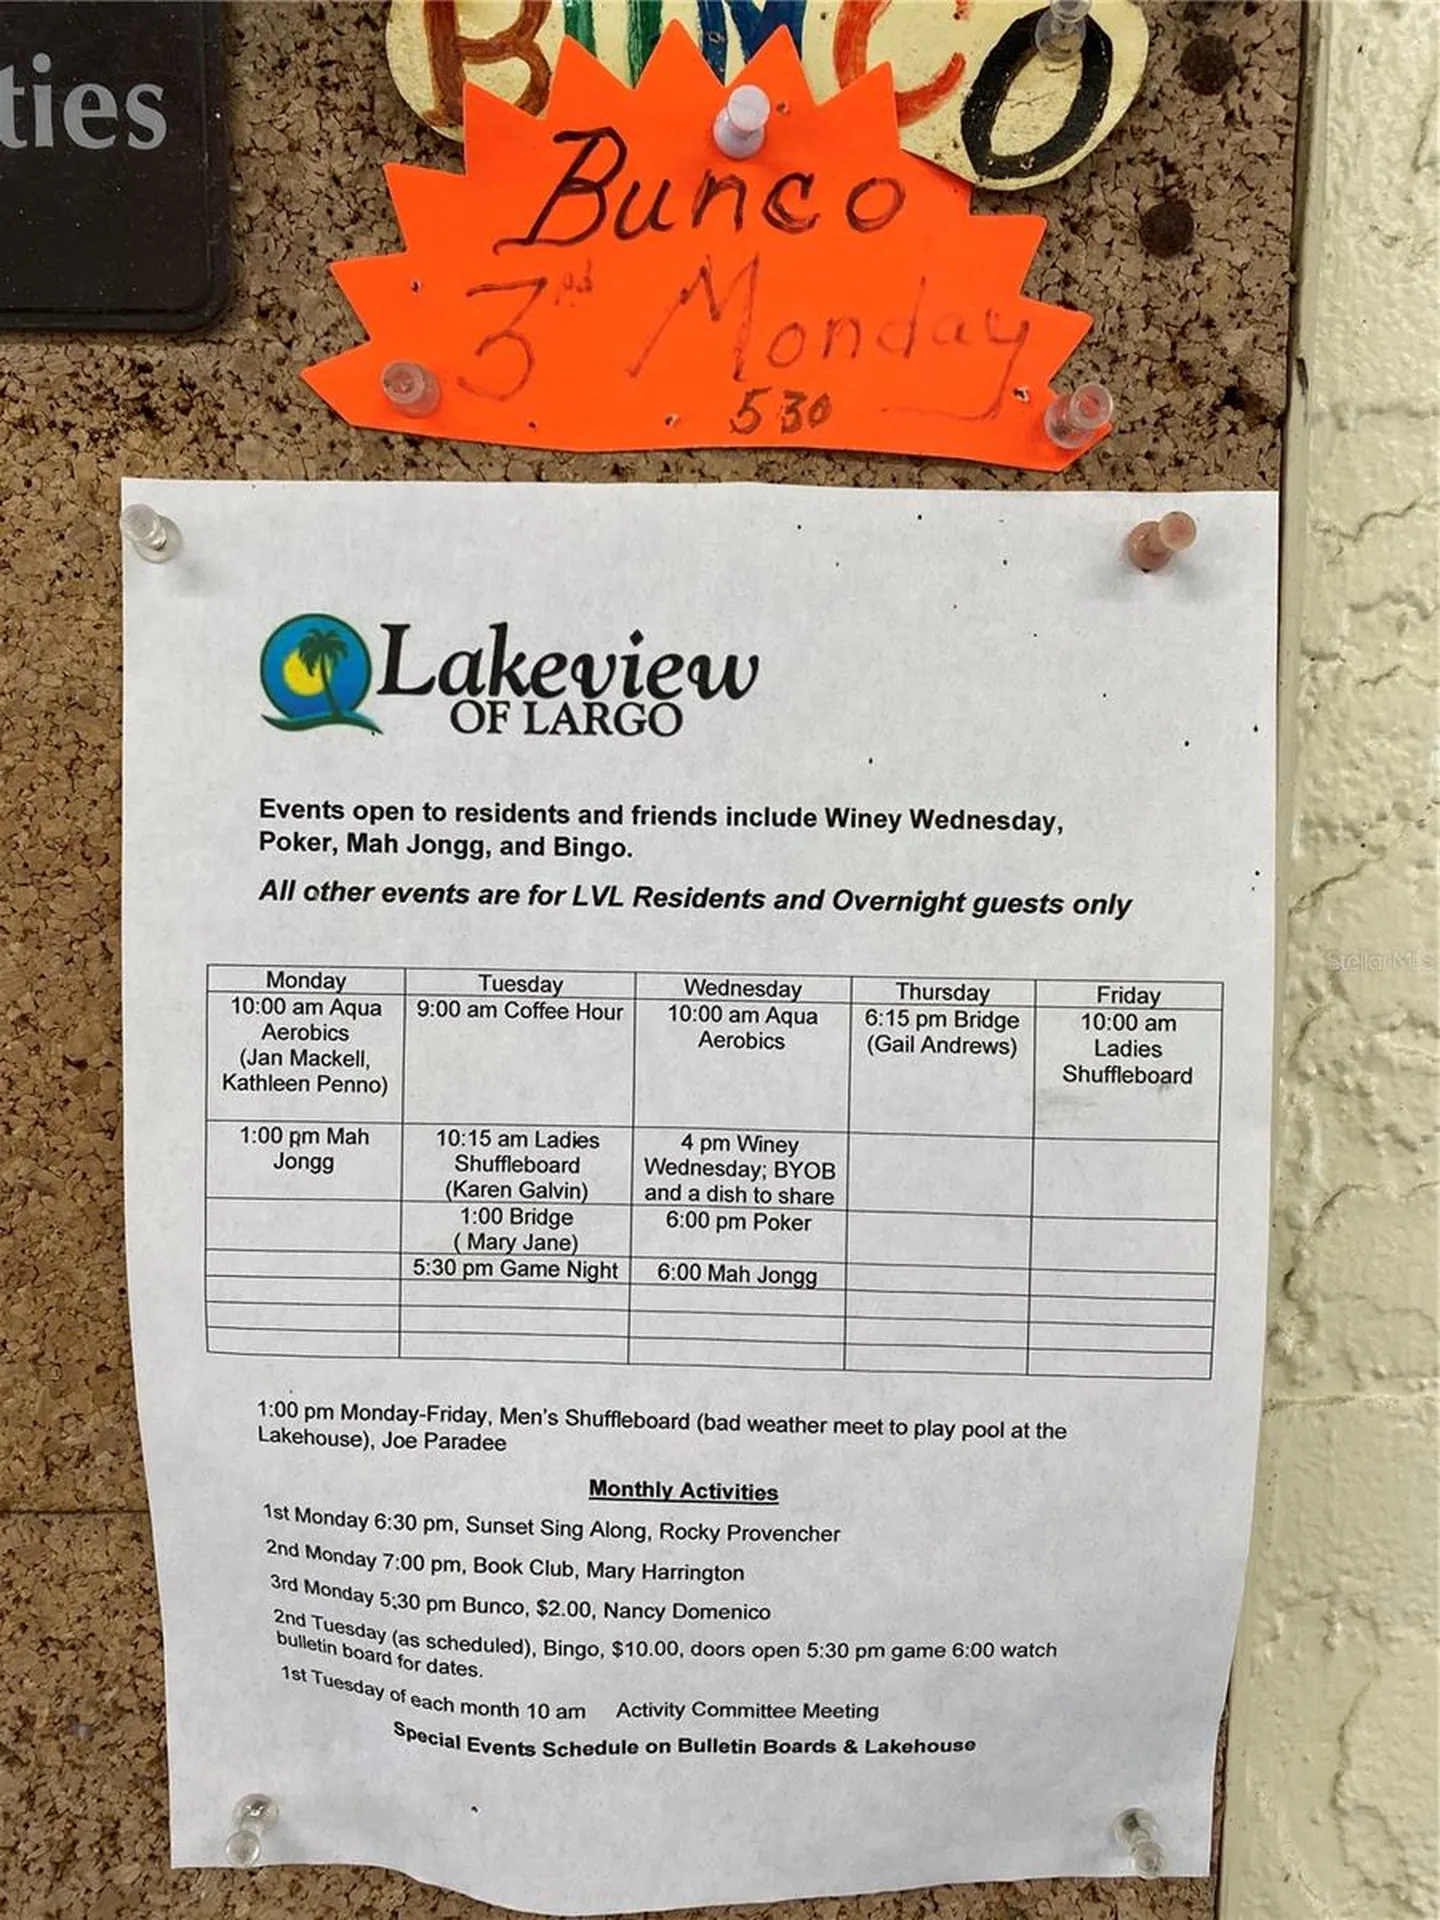 ties
BUNCO
Bunco
3rd Monday
530
Lakeview
OF LARGO
Events open to residents and friends include Winey Wednesday,
Poker, Mah Jongg, and Bingo.
All other events are for LVL Residents and Overnight guests only
Monday Tuesday Wednesday Thursday Friday
10:00 am Aqua
Aerobics
(Jan Mackell,
Kathleen Penno)
9:00 am Coffee Hour
10:00 am Aqua
Aerobics
6:15 pm Bridge
(Gail Andrews)
10:00 am
Ladies
Shuffleboard
1:00 pm Mah
Jongg
10:15 am Ladies
Shuffleboard
(Karen Galvin)
4 pm Winey
Wednesday; BYOB
and a dish to share
1:00 Bridge
( Mary Jane)
6:00 pm Poker
5:30 pm Game Night
6:00 Mah Jongg
1:00 pm Monday-Friday, Men's Shuffleboard (bad weather meet to play pool at the
Lakehouse), Joe Paradee
Monthly Activities
1st Monday 6:30 pm, Sunset Sing Along, Rocky Provencher
2nd Monday 7:00 pm, Book Club, Mary Harrington
3rd Monday 5:30 pm Bunco, $2.00, Nancy Domenico
2nd Tuesday (as scheduled), Bingo, $10.00, doors open 5:30 pm game 6:00 watch
bulletin board for dates.
1st Tuesday of each month 10 am Activity Committee Meeting
Special Events Schedule on Bulletin Boards & Lakehouse
StellarMLS